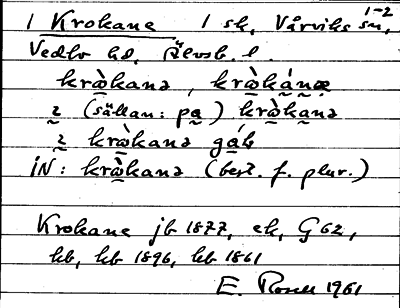 1 Krokane 1 sk, Vårviks sn, 1-2
Vedbo hd, Älvsb. l.
krò̱kanə, krò̱ká̱næ
ɪ (sällan: pa̱) krò̱ka̱nə
ɪ krò̱kanə gá̱ḷ
iN: krò̱kanə (best. f. plur.)
Krokane jb 1877, ek, G 62,
hb, hb 1896, hb 1861
E. Rosell 1961